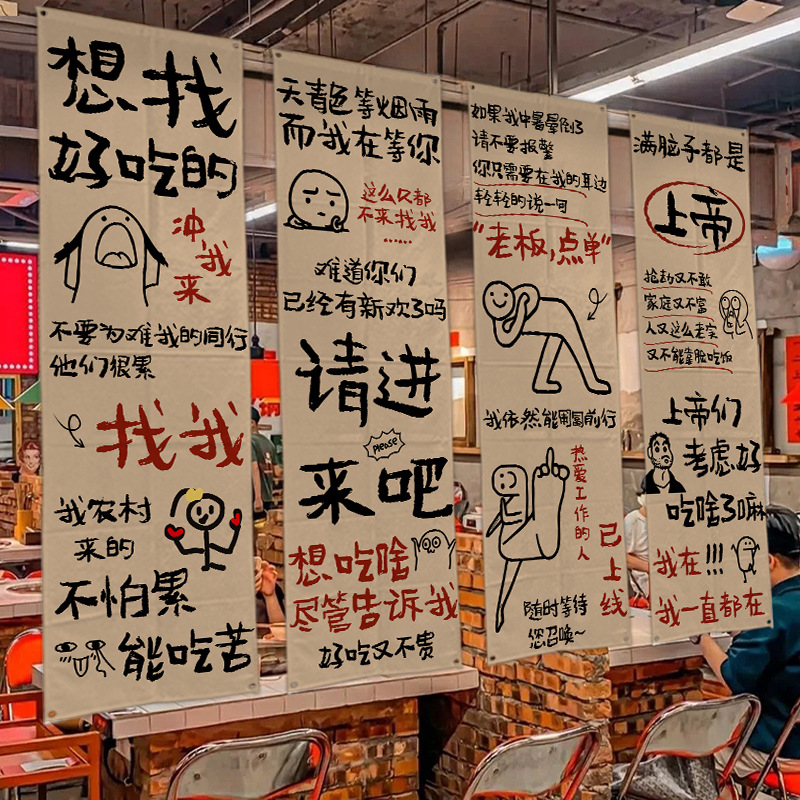 想找
好吃的
冲
我
来
不要为难我的同行
他们很累
找我
我农村
来的
不怕累
能吃苦
天青色等烟雨
而我在等你
这么久都
不来找我
······
难道你们
已经有新欢了吗
请进
please
来吧
想吃啥
尽管告诉我
好吃又不贵
如果我中暑晕倒了
请不要报警
你只需要在我的耳边
轻轻的说一句
“老板,点单”
我依然能用冒前行
热爱工作的人
已上线
随时等待
您召唤~
满脑子都是
上帝
抢劫又不敢
家庭又不富
人又这么老实
又不能靠脸吃饭
上帝们
考虑好
吃啥了嘛
我在!!!
我一直都在